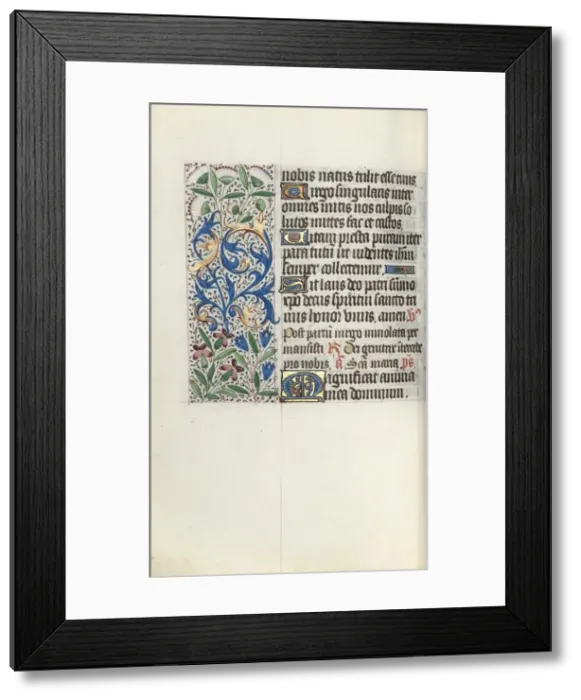 nobis natus tulit esse tuus
Virgo singularis inter
omnes mitis nos culpis so
lutos mites fac et castos
Vitam presta puram iter
para tutu ut videntes ihm
semper colletemur
Sit laus deo patri sumo
xpo decus spiritui sancto
honor unus, amen. V
Post partu virgo inviolata per
mansisti R Dei genitrix itercede
pro nobis. a Sca maria. ps
Magnificat anima
mea dominum.